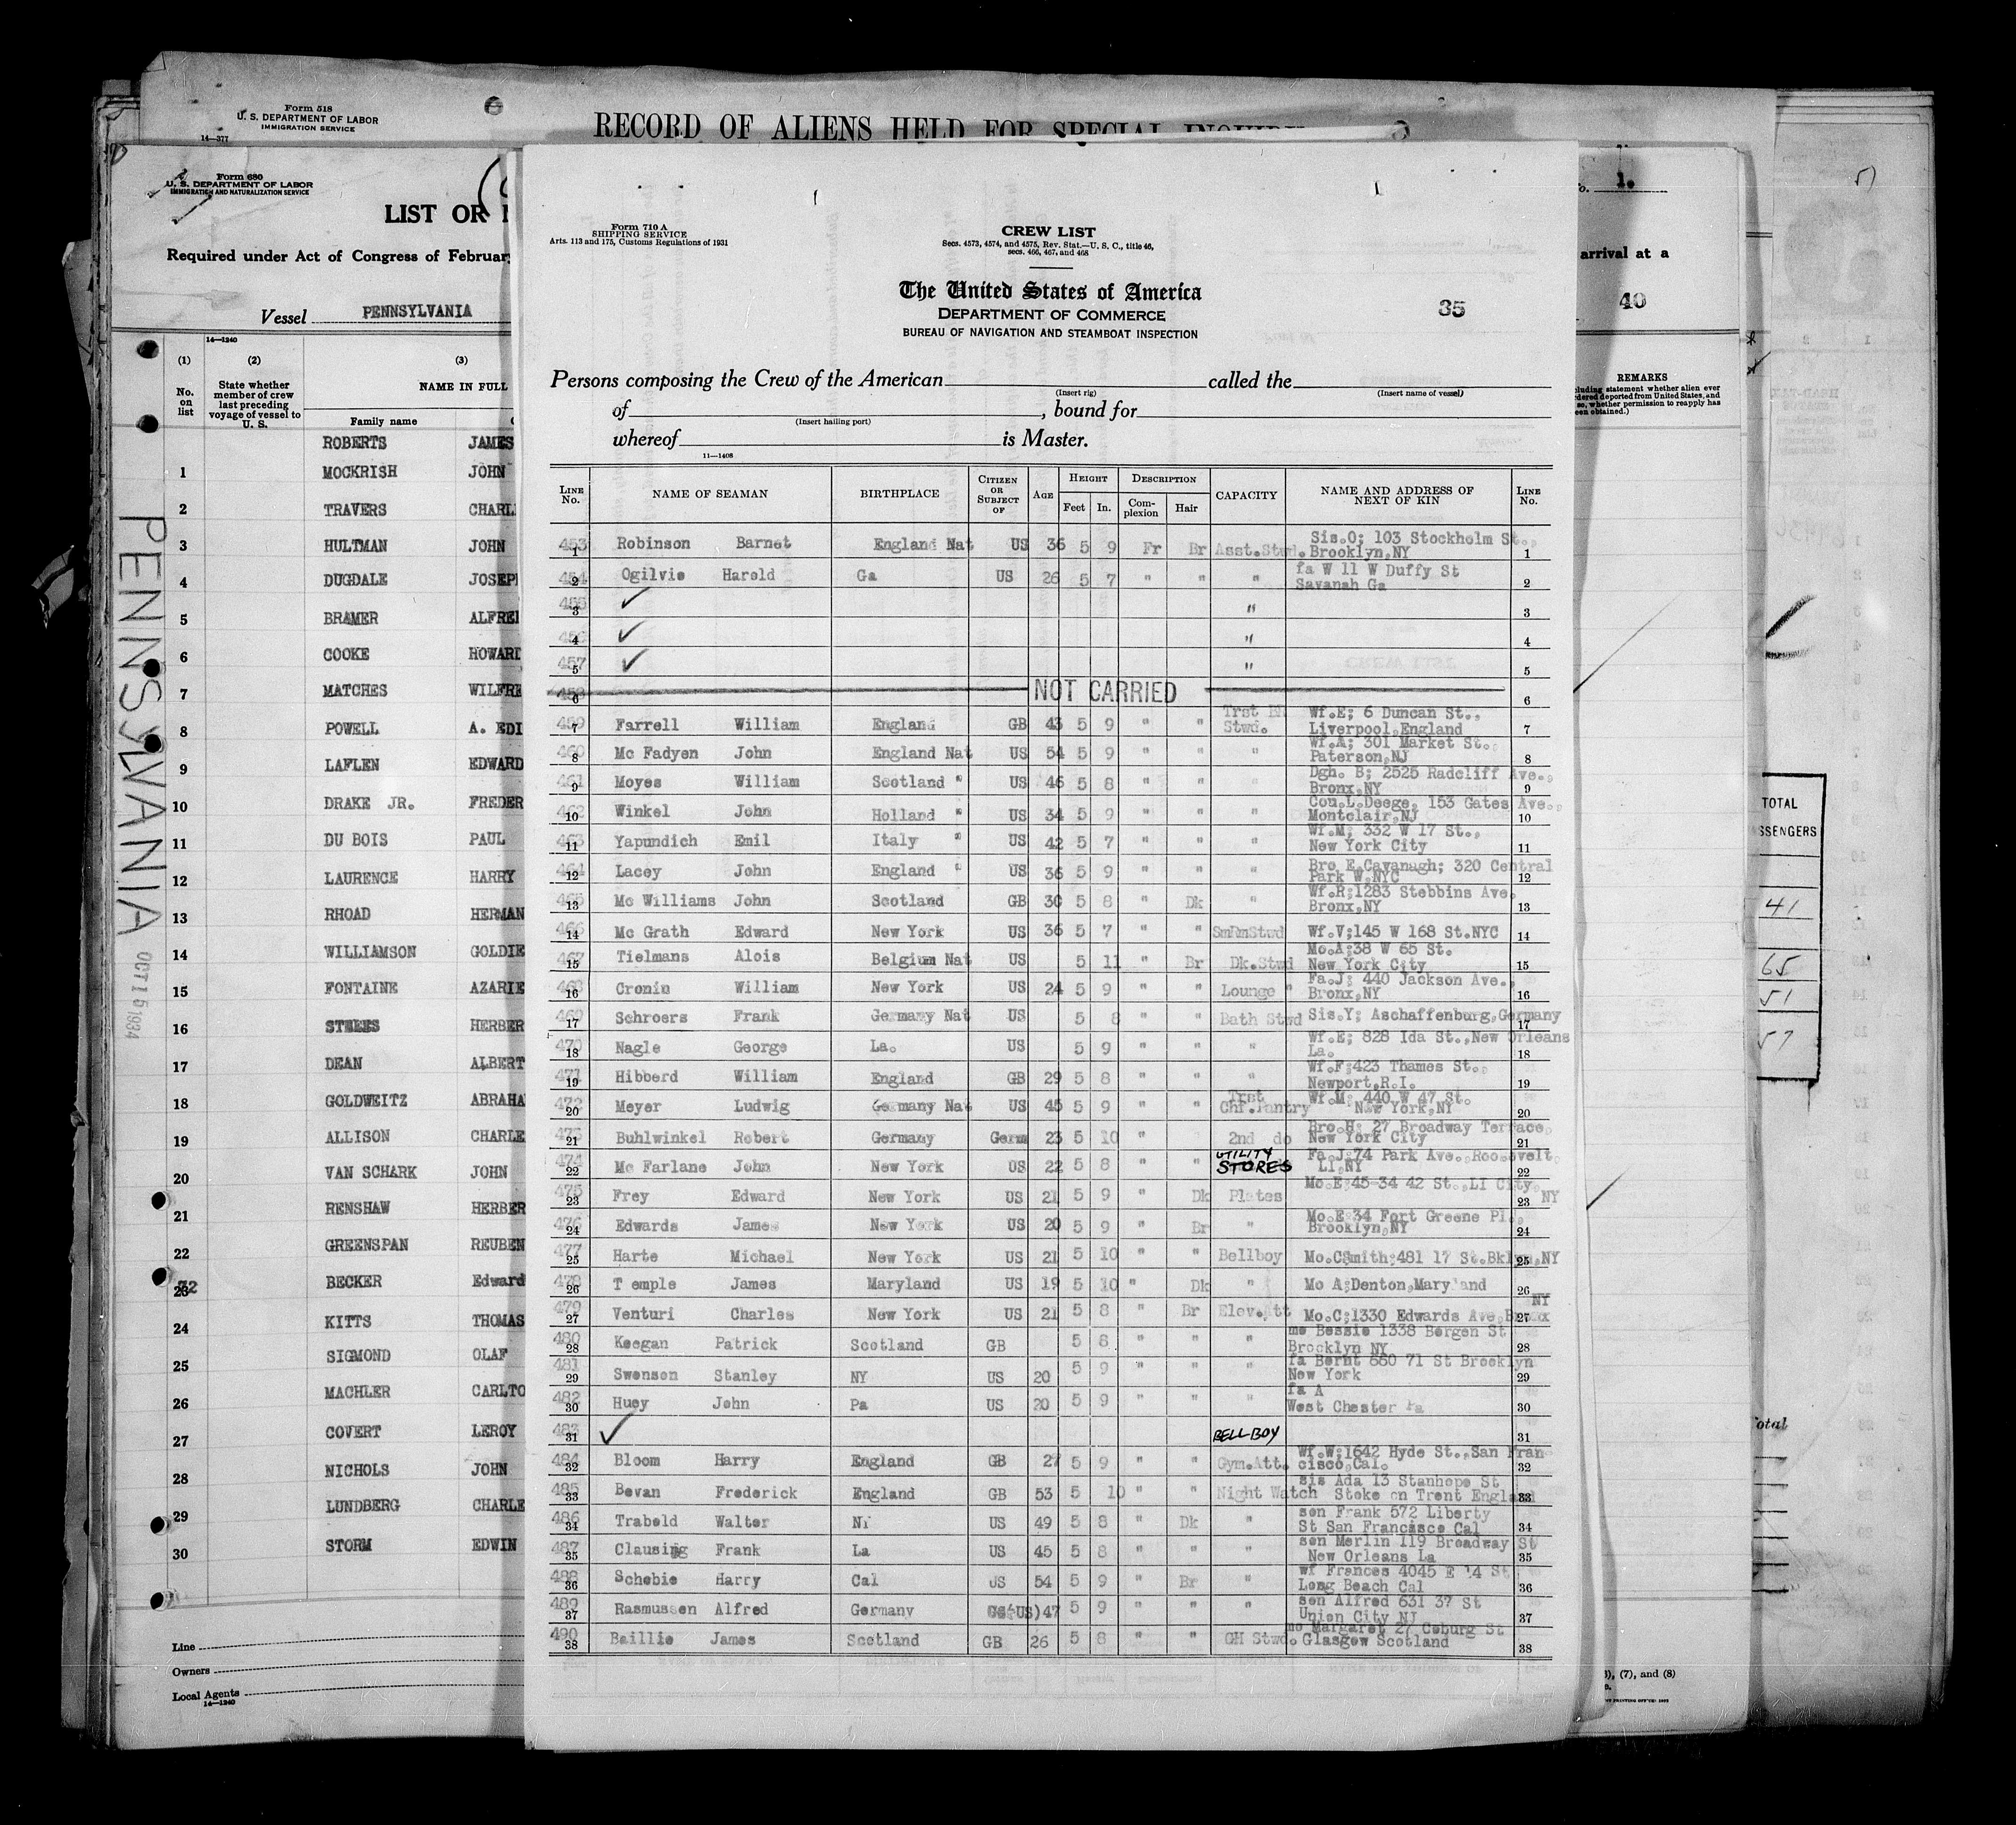 Form 518
U. S. DEPARTMENT OF LABOR
IMMIGRATION SERVICE
14—377
RECORD OF ALIENS HELD FOR SPECIAL INQUIRY
Form 680
U. S. DEPARTMENT OF LABOR
IMMIGRATION AND NATURALIZATION SERVICE
LIST OR
Required under Act of Congress of February
Vessel PENNSYLVANIA
14—1240
(1) (2) (3)
No. on list
State whether member of crew last preceding voyage of vessel to U. S.
NAME IN FULL
Family name
ROBERTS JAMES
1 MOCKRISH JOHN
2 TRAVERS CHARL
3 HULTMAN JOHN
4 DUGDALE JOSEP
5 BRAMER ALFRE
6 COOKE HOWARD
7 MATCHES WILFRE
8 POWELL A. EDI
9 LAFLEN EDWARD
10 DRAKE JR. FREDER
11 DU BOIS PAUL
12 LAURENCE HARRY
13 RHOAD HERMAN
14 WILLIAMSON GOLDIE
15 FONTAINE AZARIE
16 STEES HERBER
17 DEAN ALBERT
18 GOLDWEITZ ABRAHA
19 ALLISON CHARLE
20 VAN SCHARK JOHN
21 RENSHAW HERBER
22 GREENSPAN REUBEN
BECKER Edward
24 KITTS THOMAS
25 SIGMOND OLAF
26 MACHLER CARLTO
27 COVERT LEROY
28 NICHOLS JOHN
29 LUNDBERG CHARLE
30 STORM EDWIN
Line
Owners
Local Agents
14—1240
PENNSYLVANIA
OCT 16 1934
Form 710 A
SHIPPING SERVICE
Arts. 113 and 175, Customs Regulations of 1931
CREW LIST
Secs. 4573, 4574, and 4575, Rev. Stat.—U. S. C., title 46,
secs. 466, 467, and 468
The United States of America
DEPARTMENT OF COMMERCE
BUREAU OF NAVIGATION AND STEAMBOAT INSPECTION
35
Persons composing the Crew of the American called the
(Insert rig) (Insert name of vessel)
of , bound for
(Insert hailing port)
whereof is Master.
11—1408
LINE No. NAME OF SEAMAN BIRTHPLACE CITIZEN OR SUBJECT OF AGE HEIGHT Feet In. DESCRIPTION Complexion Hair CAPACITY NAME AND ADDRESS OF NEXT OF KIN LINE No.
453 1 Robinson Barnet England Nat US 36 5 9 Fr Br Asst.Stwd. Sis.O; 103 Stockholm St., Brooklyn,NY 1
454 2 Ogilvie Harold Ga US 26 5 7 " " " fa W 11 W Duffy St Savanah Ga 2
455 3 ✓ " 3
456 4 ✓ " 4
457 5 ✓ " 5
458 6 NOT CARRIED 6
459 7 Farrell William England GB 43 5 9 " " Trst Stwd. Wf.E; 6 Duncan St., Liverpool,England 7
460 8 Mc Fadyen John England Nat US 54 5 9 " " " Wf.A; 301 Market St. Paterson,NJ 8
461 9 Moyes William Scotland " US 46 5 8 " " " Dgh. B; 2525 Radcliff Ave., Bronx,NY 9
462 10 Winkel John Holland " US 34 5 9 " " " Cou.L.Deege, 153 Gates Ave. Montclair,NJ 10
463 11 Yapundich Emil Italy " US 42 5 7 " " " Wf.M; 332 W 17 St., New York City 11
464 12 Lacey John England " US 36 5 9 " " " Bro E.Cavanagh; 320 Central Park W.NYC 12
465 13 Mc Williams John Scotland GB 30 5 8 " Dk " Wf.R;1283 Stebbins Ave. Bronx,NY 13
466 14 Mc Grath Edward New York US 36 5 7 " " SmRmStwd Wf.V;145 W 168 St.NYC 14
467 15 Tielmans Alois Belgium Nat US 5 11 " Br Dk.Stwd Mo.A;38 W 65 St. New York City 15
468 16 Cronin William New York US 24 5 9 " " Lounge " Fa.J; 440 Jackson Ave., Bronx,NY 16
469 17 Schroers Frank Germany Nat US 5 8 " " Bath Stwd Sis.Y; Aschaffenburg,Germany 17
470 18 Nagle George La. US 5 9 " " " Wf.E; 828 Ida St.,New Orleans La. 18
471 19 Hibberd William England GB 29 5 8 " " " Wf.F;423 Thames St. Newport,R.I. 19
472 20 Meyer Ludwig Germany Nat US 45 5 9 " " Trst Chf.Pantry Wf.M; 440 W 47 St. New York,NY 20
473 21 Buhlwinkel Robert Germany Germ 23 5 10 " 2nd do Bro.H; 27 Broadway Terrace New York City 21
474 22 Mc Farlane John New York US 22 5 8 " " UTILITY STORES Fa.J;74 Park Ave.,Roosevelt, LI,NY 22
475 23 Frey Edward New York US 21 5 9 " Dk Plates Mo.E;45-34 42 St.,LI City, NY 23
476 24 Edwards James New York US 20 5 9 " Br " Mo.E;34 Fort Greene Pl. Brooklyn,NY 24
477 25 Harte Michael New York US 21 5 10 " " Bellboy Mo.CSmith;481 17 St.Bklyn,NY 25
478 26 T emple James Maryland US 19 5 10 " Dk " Mo A;Denton,Maryland 26
479 27 Venturi Charles New York US 21 5 8 " Br Elev.Att Mo.C;1330 Edwards Ave,Bronx NY 27
480 28 Keegan Patrick Scotland GB 5 8 " " " mo Bessie 1338 Bergen St Brooklyn NY 28
481 29 Swenson Stanley NY US 20 5 9 " " " fa Bernt 660 71 St Brooklyn New York 29
482 30 Huey John Pa US 20 5 9 " " " fa A West Chester Pa 30
483 31 ✓ BELLBOY 31
484 32 Bloom Harry England GB 27 5 9 " " Gym.Att. Wf.W;1642 Hyde St.,San Fran cisco,Cal. 32
485 33 Bevan Frederick England GB 53 5 10 " " Night Watch sis Ada 13 Stanhope St Stoke on Trent England 33
486 34 Trabold Walter NY US 49 5 8 " Dk " son Frank 572 Liberty St San Francisco Cal 34
487 35 Clausing Frank La US 45 5 8 " " " son Merlin 119 Broadway St New Orleans La 35
488 36 Schobie Harry Cal US 54 5 9 " Br " wf Frances 4045 E 14 St Long Beach Cal 36
489 37 Rasmussen Alfred Germany (US) 47 5 9 " " " son Alfred 631 37 St Union City NJ 37
490 38 Baillie James Scotland GB 26 5 8 " " GH Stwd. mo Margaret 27 Coburg St Glasgow Scotland 38
1.
arrival at a
40
REMARKS
cluding statement whether alien ever
rdered deported from United States, and
so, whether permission to reapply has
een obtained.)
TOTAL
SSENGERS
41
65
51
57
otal
(7), and (8)